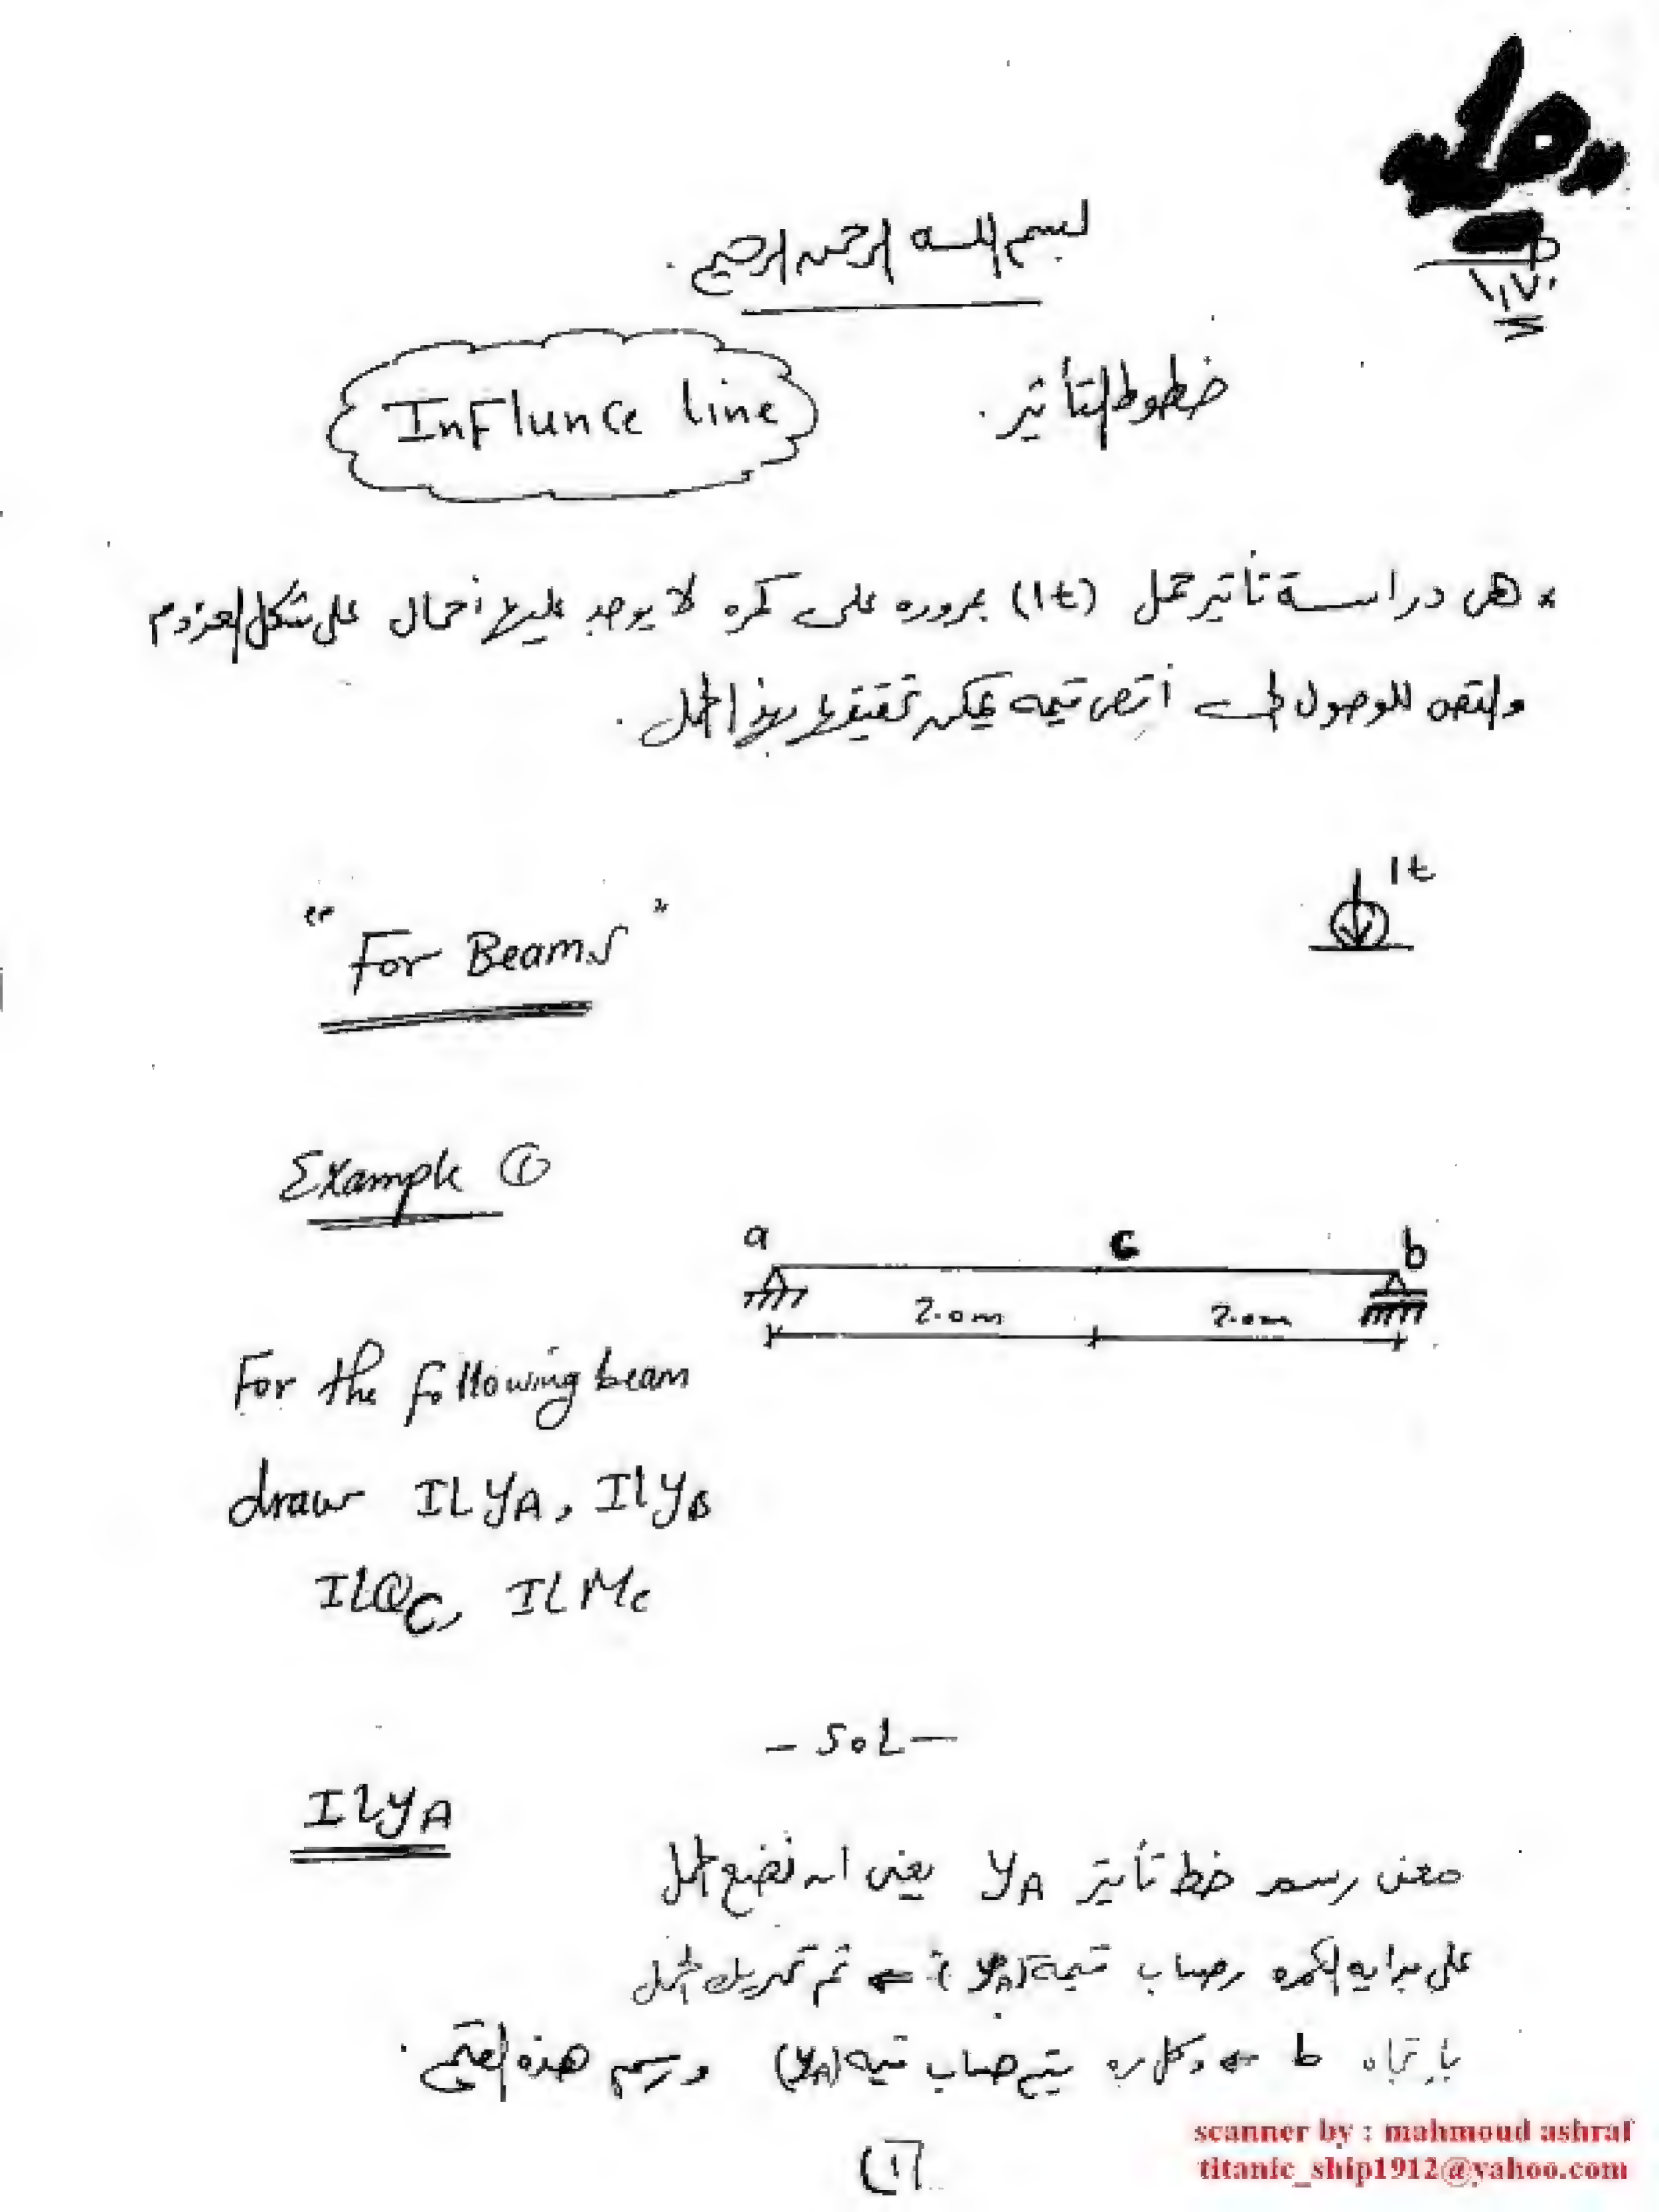 بسم الله الرحمن الرحيم.
خطوط التأثير.
InFlunce line
* هى دراسة تأثير حمل (1t) بمروره على كمره لا يوجد عليها أحمال على شكل العزوم
والقص للوصول إلى أقصى قيمه يمكن تحقيقها بهذا الحمل.
1t
"For Beams"
Example ①
a c b
2.0m 2.0m
For the following beam
draw ILYA, ILYB
ILQC, ILMC
- SOL -
ILYA
معنى رسم خط تأثير YA يعنى ان نضع الحمل
على بدايه الكمره وحساب قيمة (YA) ← ثم تحريك الحمل
باتجاه b ← وكل مره يتم حساب قيمه (YA) ورسم هذه القيم.
(1)
scanner by : mahmoud ashraf
titanic_ship1912@yahoo.com